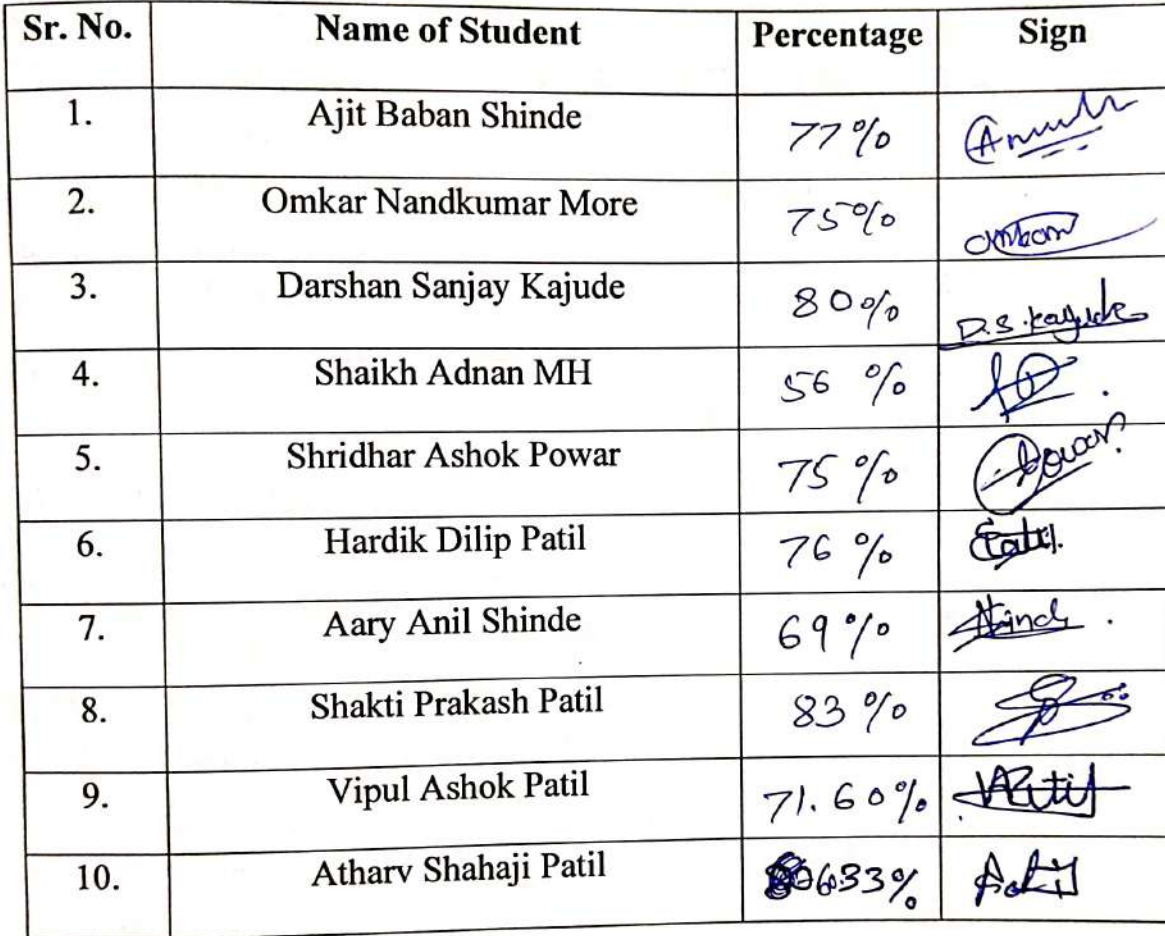 Sr. No. Name of Student Percentage Sign
1. Ajit Baban Shinde 77%
2. Omkar Nandkumar More 75% omkar
3. Darshan Sanjay Kajude 80% D.S. Kajude
4. Shaikh Adnan MH 56 %
5. Shridhar Ashok Powar 75 % Powar
6. Hardik Dilip Patil 76 % Patil
7. Aary Anil Shinde 69 %
8. Shakti Prakash Patil 83 %
9. Vipul Ashok Patil 71.60%
10. Atharv Shahaji Patil